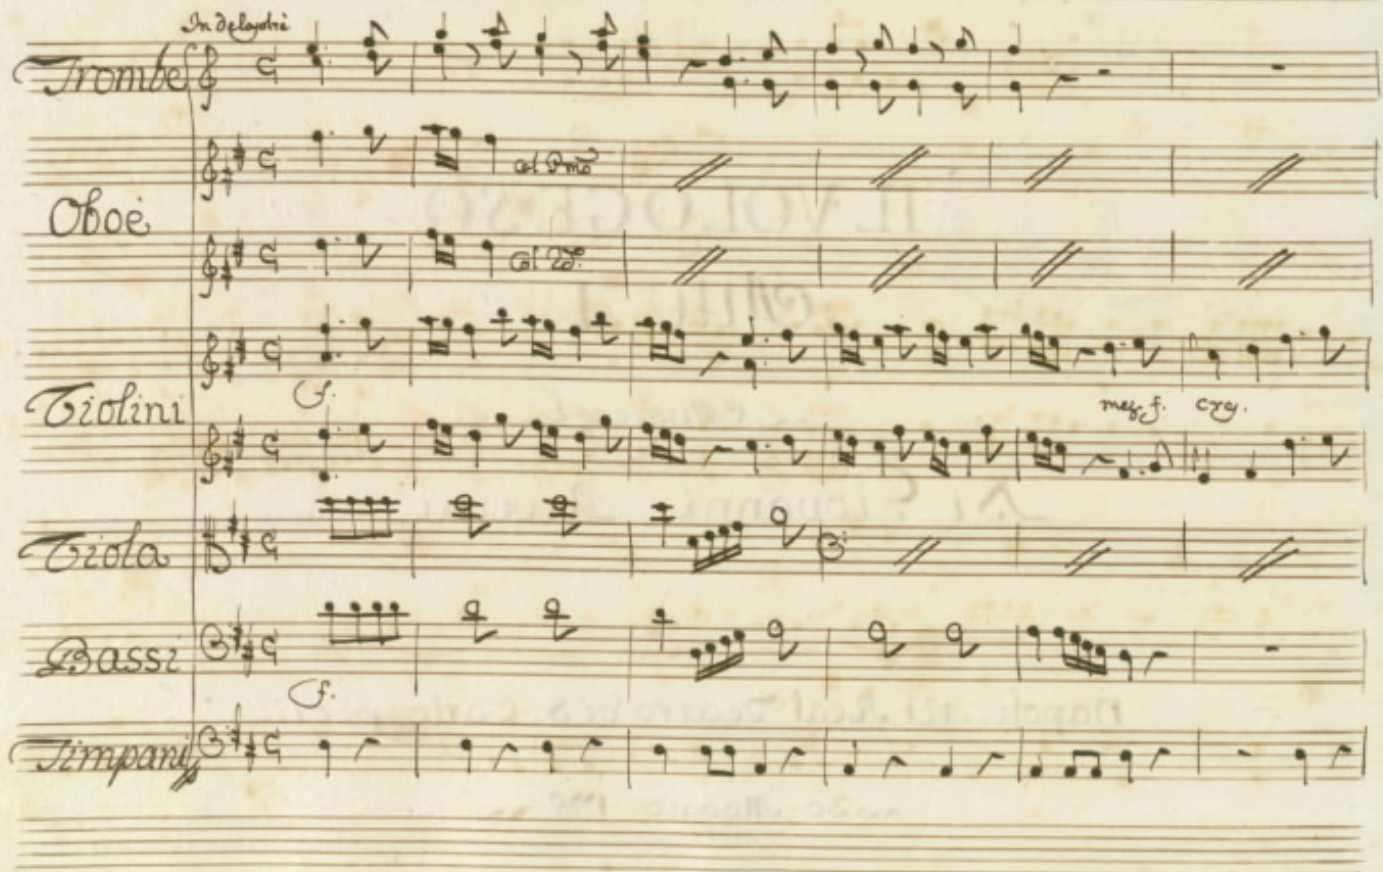 In Delasolrè
Trombe
Oboè
Col Pmo
Col 2do.
Violini
f.
mez. f. cres.
Viola
Bassi
f.
Timpani